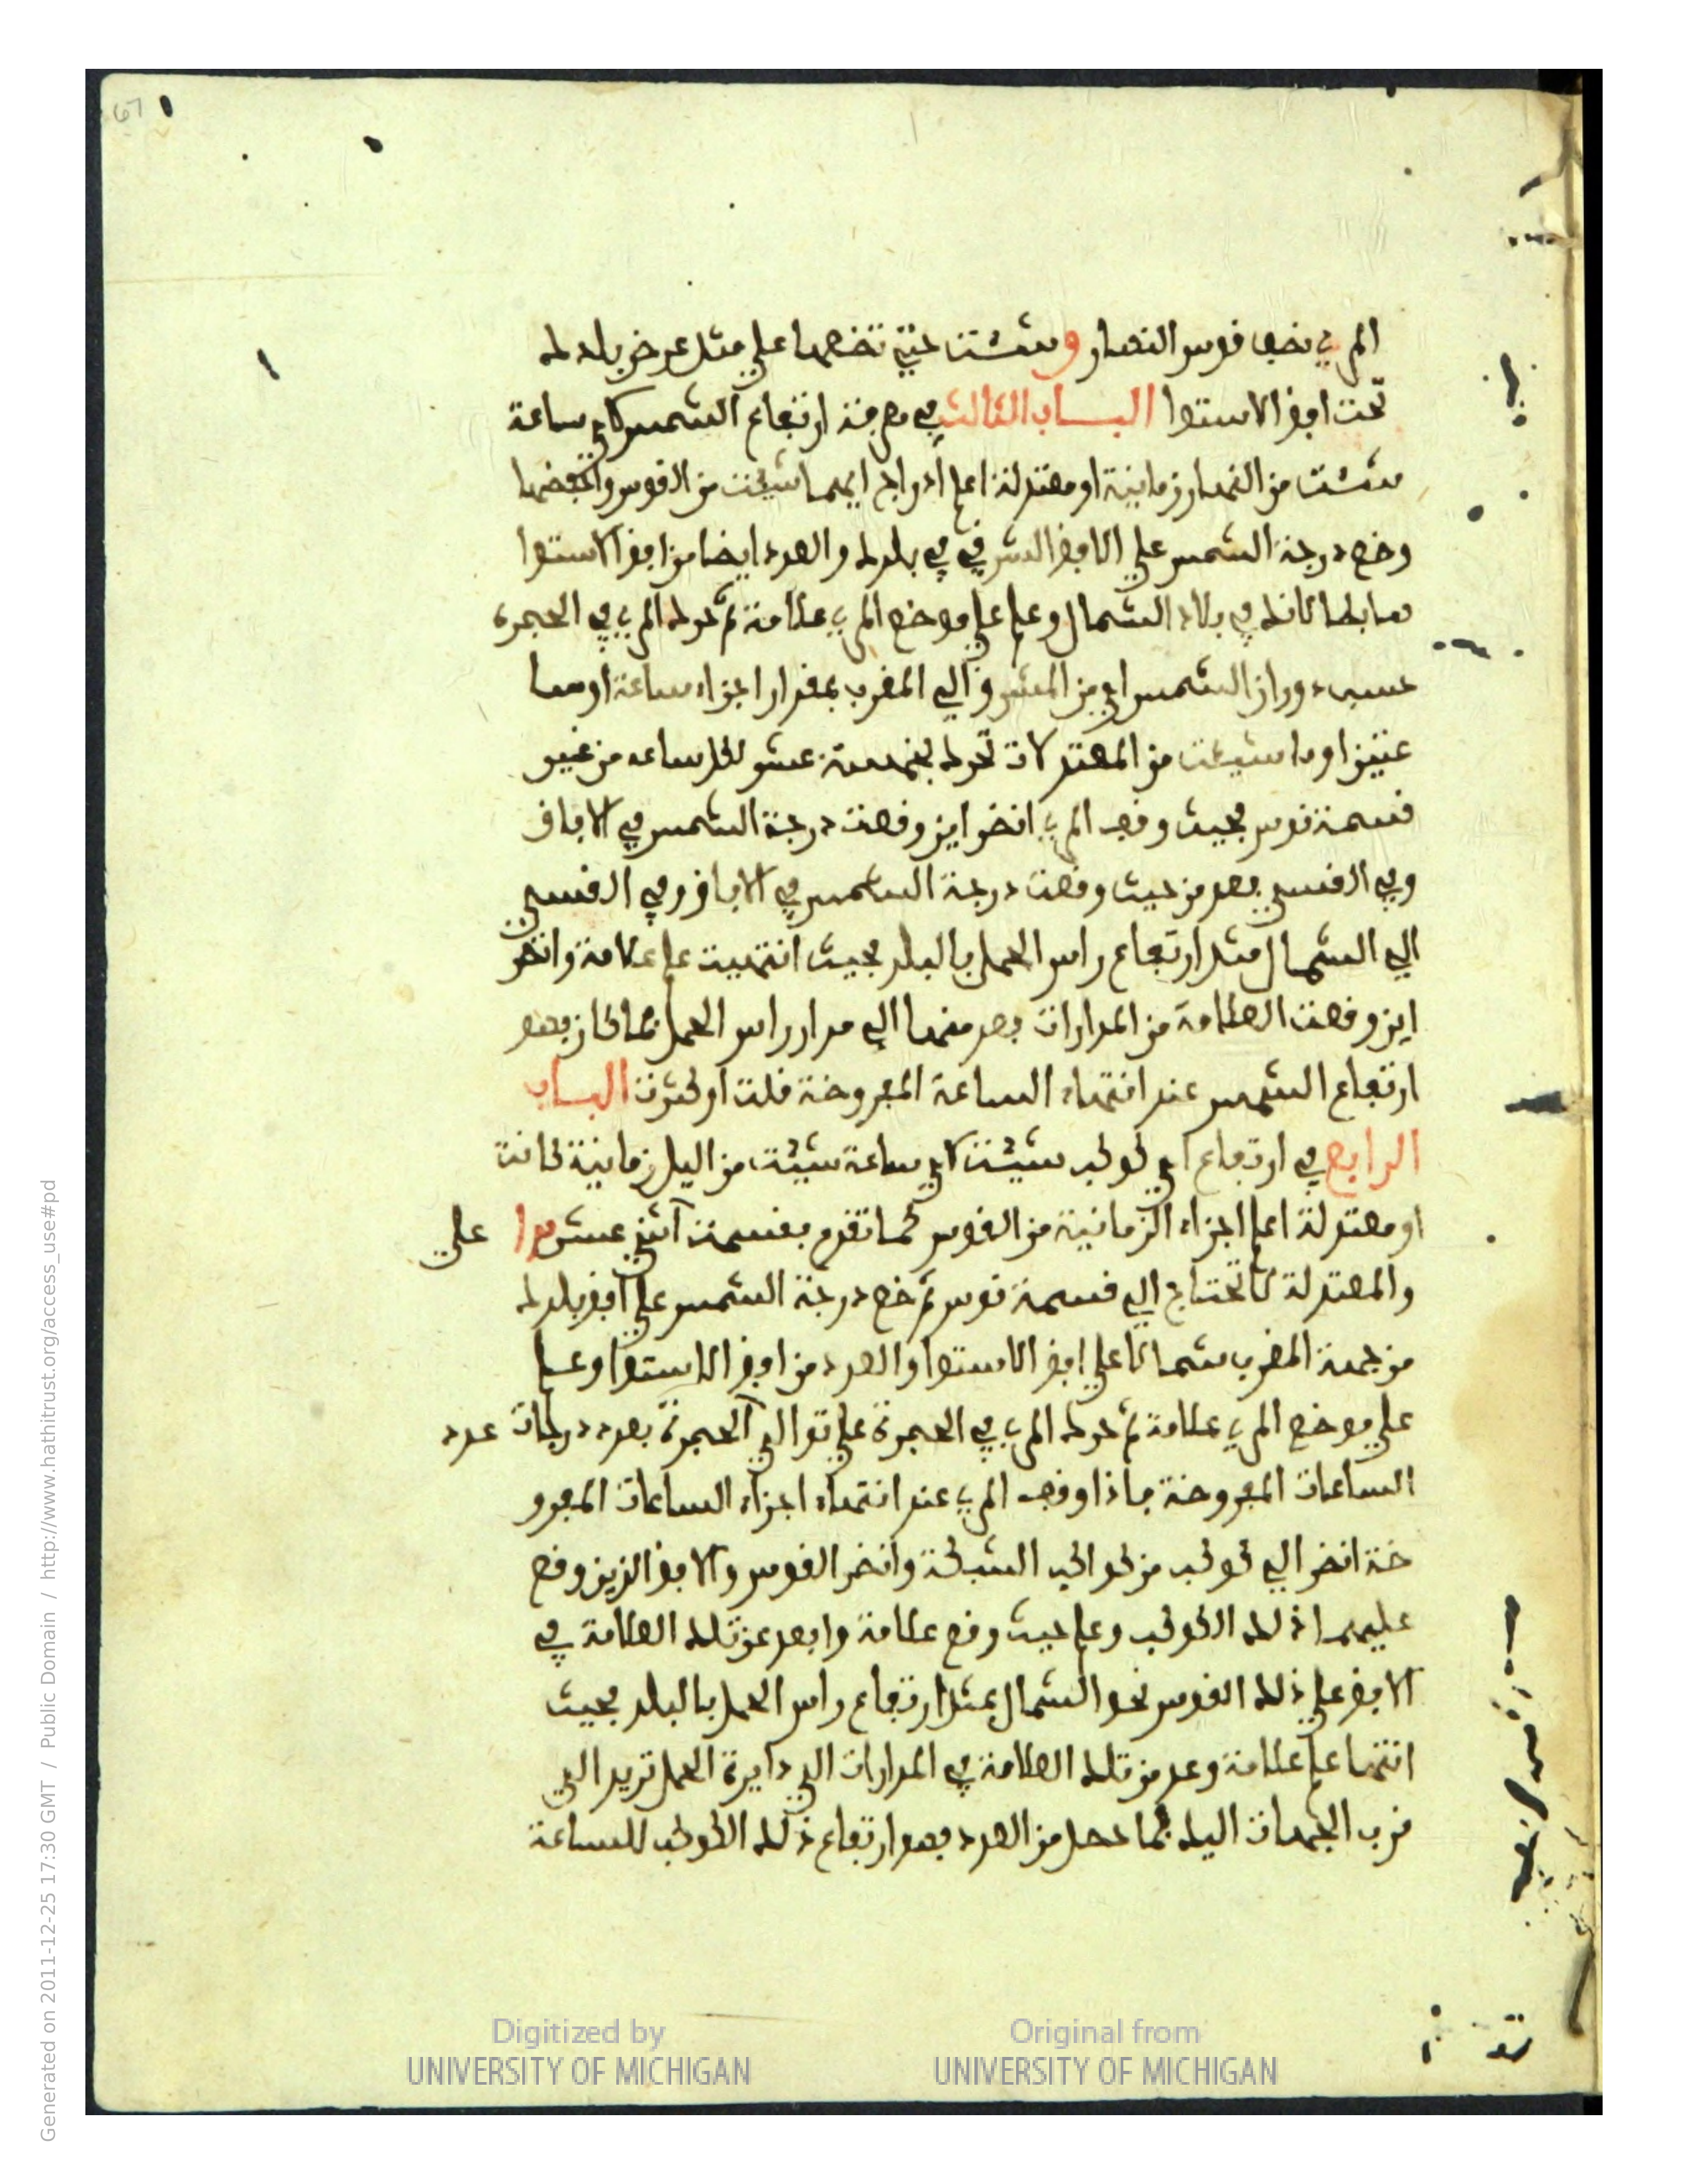 67
المري نصف قوس النهار وسشت حتى تضعها على مثل عرض بلدك
تحت افق الاستوا الباب الثالث في معرفة ارتفاع الشمس لاي ساعة
سشت من النهار زمانية او معتدلة اعلم ايهما شيت من القوس
وضع درجة الشمس على الافق الشرقي في بلدك والعدد ايضا من افق الاستوا
في بلاد الشمال وعلم على موضع المري علامة ثم حرك المري في الحجرة
دوران الشمس اي من المشرق الي المغرب بمقدار اجزاء ساعة او سا
عتين او ما شيت من المعتدلات تحرك بخمسة عشر لكل ساعه من غير
قسمة قوس بحيث وقف المري انظر اين وقعت درجة الشمس في الافاق
وفي القسي فعد من حيث وقعت درجة الشمس في الافاق وفي القسي
الي الشمال مثل ارتفاع راس الحمل بالبلد بحيث انتهيت علم علامة وانظر
اين وقعت العلامة من المدارات فعد منها الي مدار راس الحمل فما كان فهو
ارتفاع الشمس عند انتهاء الساعة المفروضة قلت او كثرت الباب
الرابع في ارتفاع اي كوكب شيت لاي ساعة شيت من اليل زمانية كانت
او معتدلة اعلم اجزاء الزمانية من القوس كما تقدم بقسمة اثني عشر على
والمعتدلة لا تحتاج الي قسمة قوس ثم ضع درجة الشمس على افق بلدك
من جهة المغرب شمالا على افق الاستوا والعدد من افق الاستوا وعلم
على موضع المري علامة ثم حرك المري في الحجرة على توالي الحجرة بعدد درجات عدد
الساعات المفروضة فاذا وقف المري عند انتهاء اجزاء الساعات المفرو
ضة انظر الي كوكب من كواكب الشبكة وانظر القوس والافق الذين وقع
عليهما ذلك الكوكب وعلم حيث وقع علامة وابعد عن تلك العلامة في
الافق على ذلك القوس نحو الشمال بمثل ارتفاع راس الحمل بالبلد بحيث
انتها علم علامة وعد من تلك العلامة في المدارات الي دايرة الحمل تريد الي
قرب الجهات اليك فما حصل من العدد فهو ارتفاع ذلك الكوكب للساعة
Digitized by
UNIVERSITY OF MICHIGAN
Original from
UNIVERSITY OF MICHIGAN
Generated on 2011-12-25 17:30 GMT / Public Domain / http://www.hathitrust.org/access_use#pd